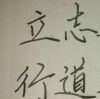 立志
行道